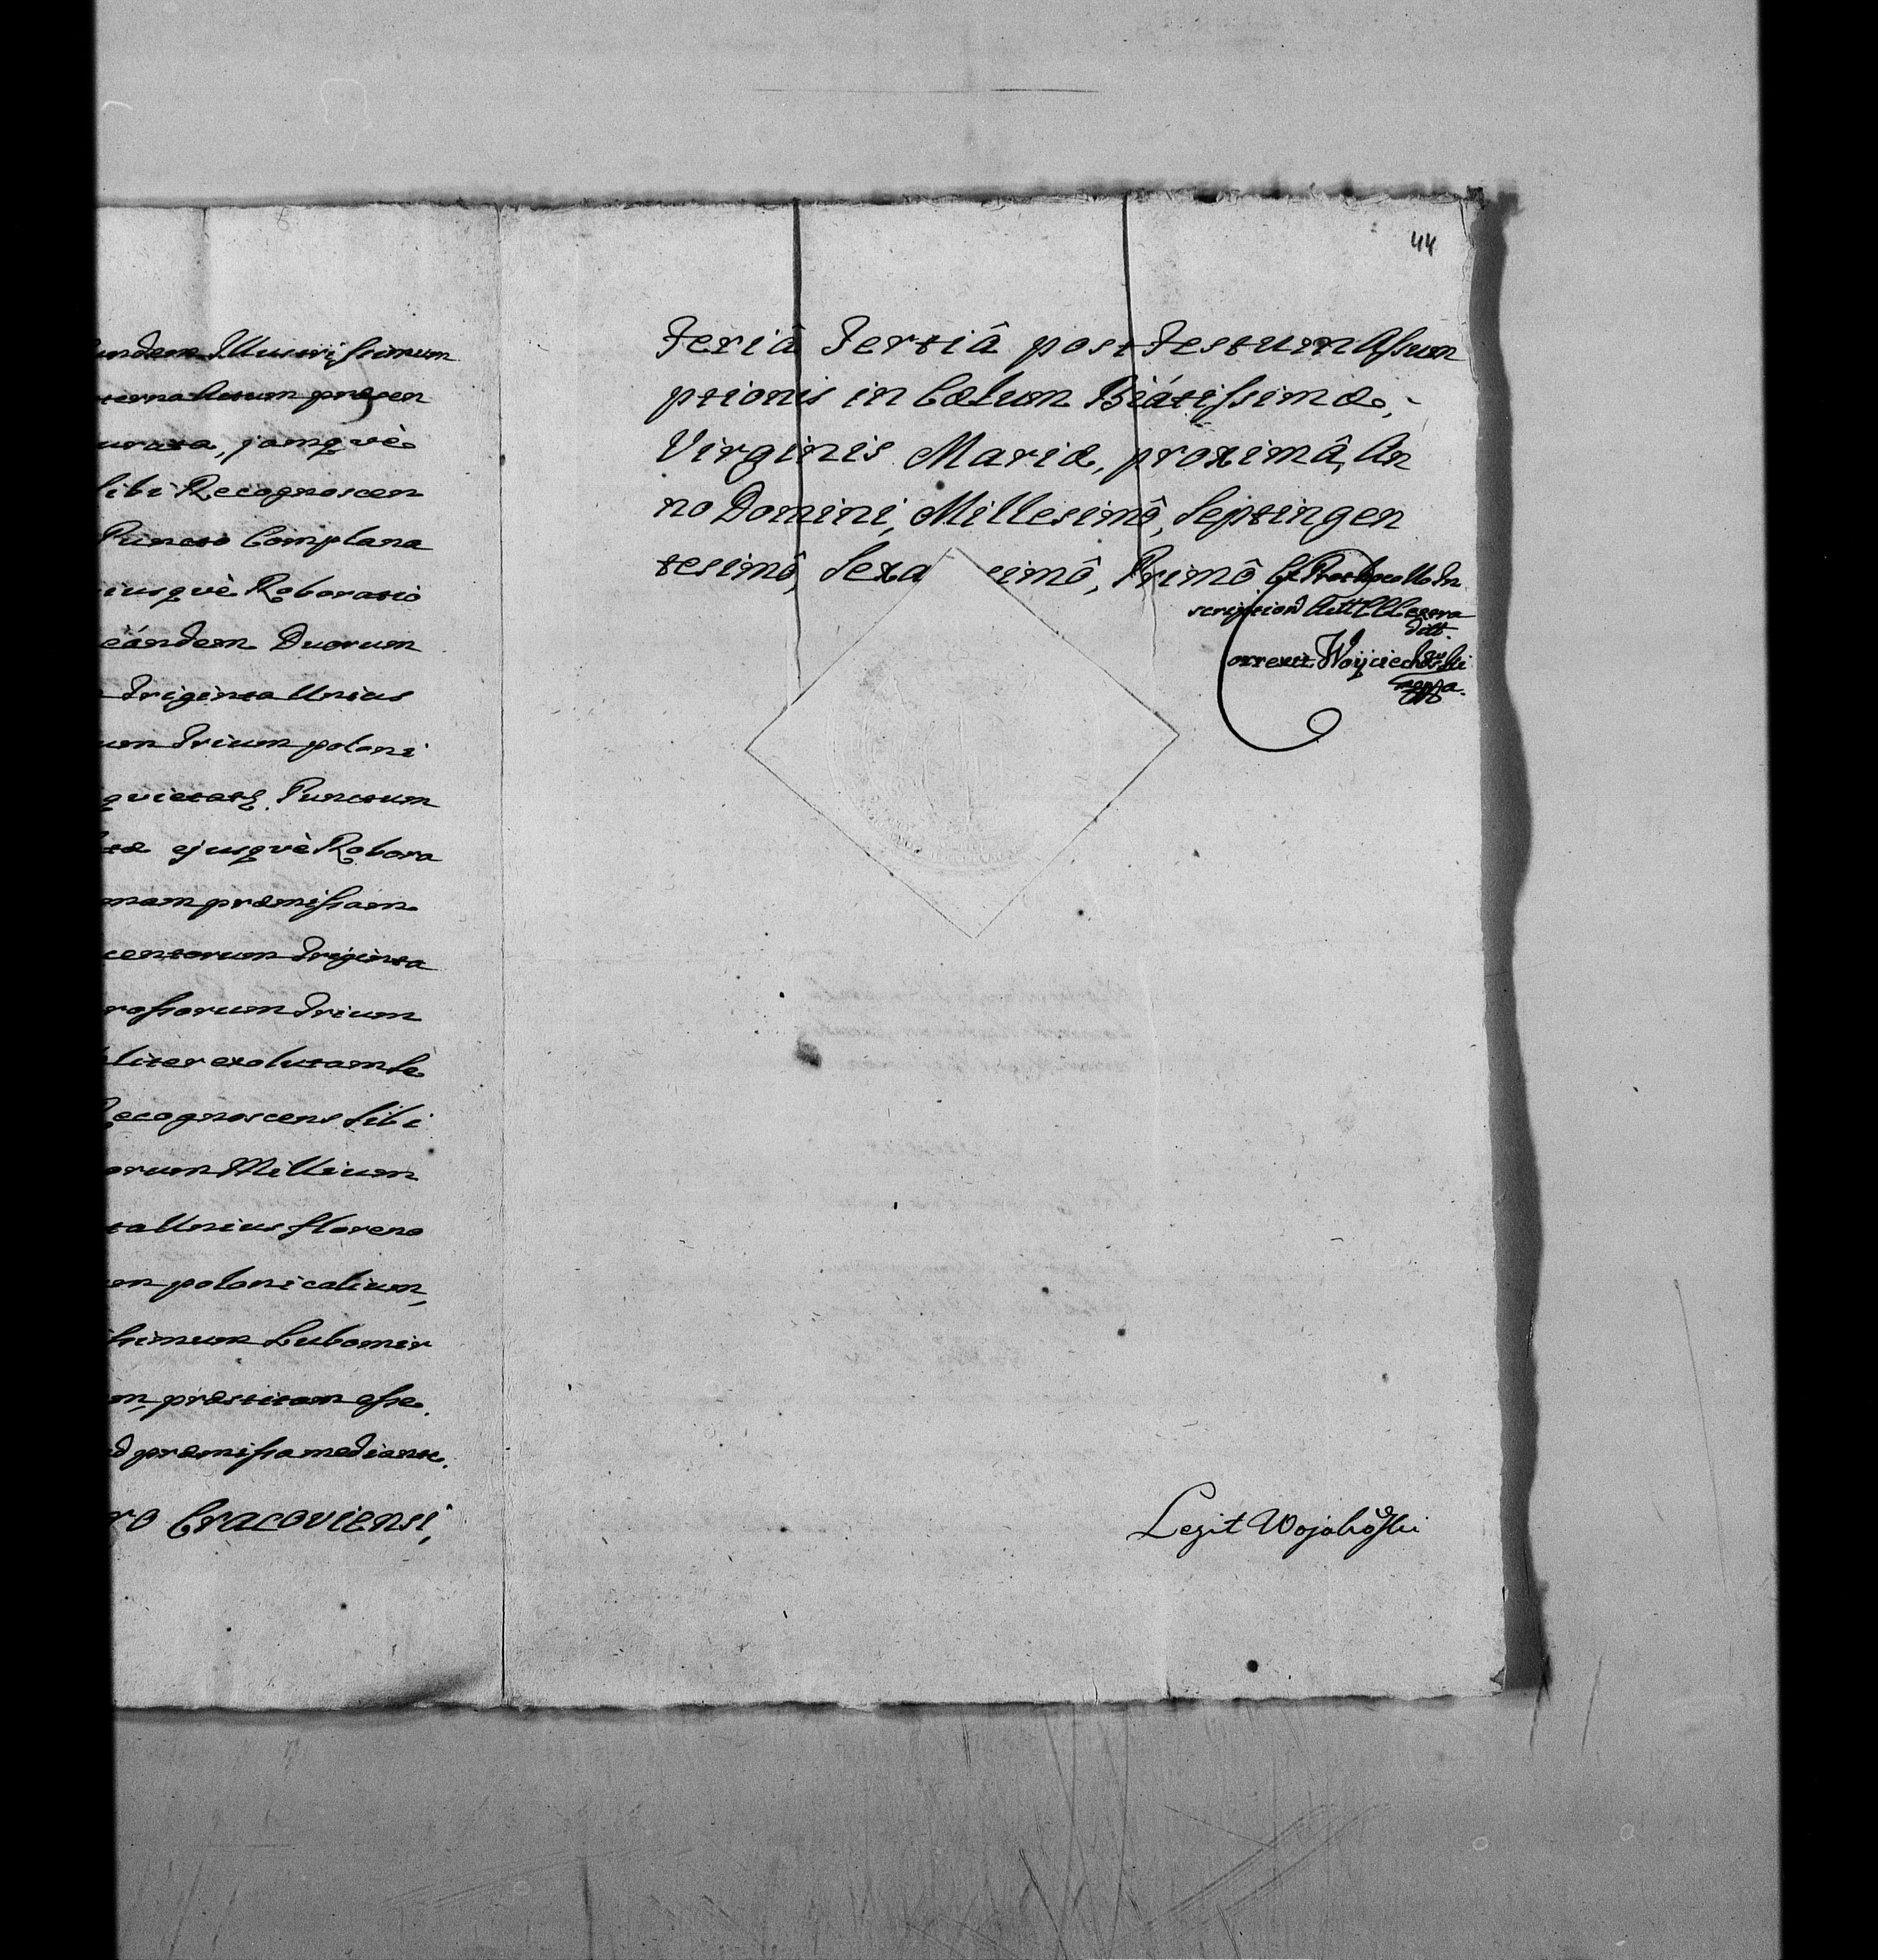 undem Illustrissimum
ternallatum præsen
urata, jamqvè
sibi Recognoscen
Puncto Complana
iusqvè Roboratio
eándem Duorum
Triginta Unius
um Trium poloni
qvietatq Punctum
tæ ejusqvè Robora
mam præmissam
centorum Triginta
rossorum Trium
liter exolutam se
Recognoscens sibi
orum Millium
ta Unius floreno
um polonicalium,
ssimum Lubomir
m, præstitam esse.
d præmissa mediante.
ro Cracoviensi,
44
Feriâ Tertiâ post Festum Assum
ptionis in Cælum Biátissimæ,
Virginis Mariæ, proximâ, An
no Domini, Millesimô, Septingen
tesimô, Sexa simô, Primô Ex Prothocollo In
scription Castr
ditt.
Correxit Woyciechowski
mppa.
Legit Wojakoski